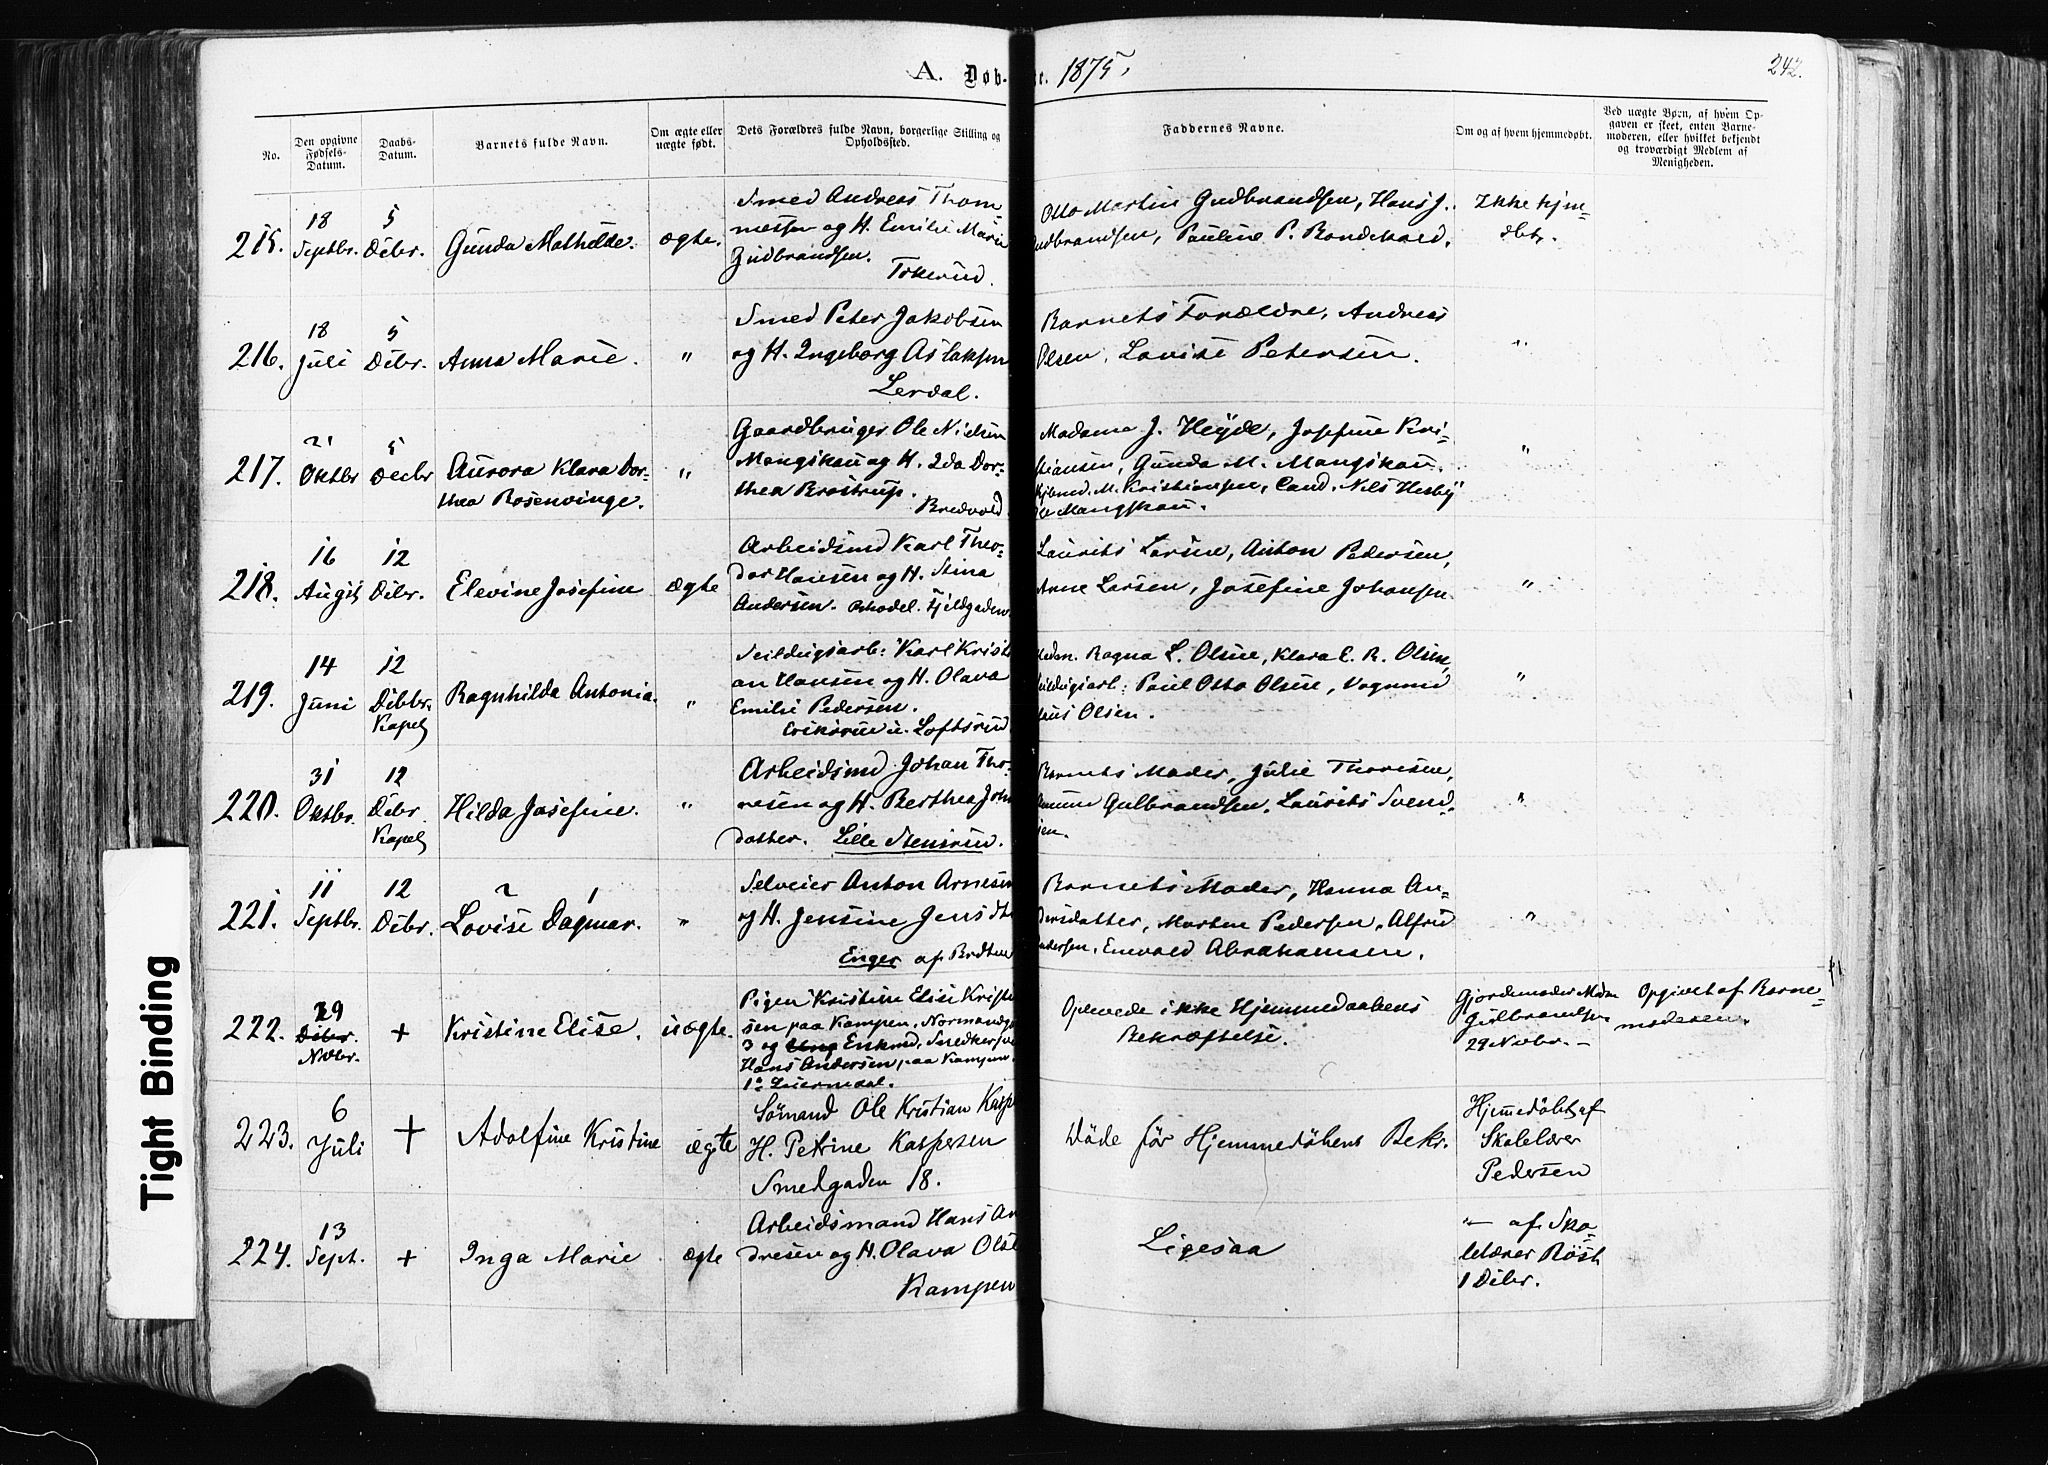 A. Døb- e. 1875.
242.
No.
Den opgivne Fødsels-Datum.
Daabs-Datum.
Barnets fulde Navn.
Om ægte eller uægte født.
Dets Forældres fulde Navn, borgerlige Stilling og Opholdssted.
Faddernes Navne.
Om og af hvem hjemmedøbt.
Ved uægte Børn, af hvem Opgaven er skeet, enten Barnemoderen, eller hvilket bekjendt og troværdigt Medlem af Menigheden.
215. 18 Septbr. 5 Debr. Gunda Mathilde. ægte.
Smed Andreas Thom
messen og H. Emilie Marie
Gudbrandsen.
Tokerud.
Otto Martin Gudbrandsen, Hans J.
udbrandsen, Pauline P.
Ikke hjm=
dbt.
216. 18 Juli 5 Debr. Anna Marie. "
Smed Peter Jakobsen
og H. Ingeborg Aslaksen
Lerdal.
Barnets Forældre, Andreas
Olsen, Lovise Petersen.
"
217. 21 Oktbr 5 Decbr Aurora Klara Dor=
thea Rosenvinge. "
Gaardbruger Ole Nielsen
Mangskau og H. Ida Dor=
thea Brostrup.
Bredvold.
Madame J. Heyde, Josefine Kri=
stiansen, Gunda M. Mangskau.
M. Kristiansen, Cand. Nils Hesby
Mangskau.
"
218. 16 Augst 12 Debr. Elevine Josefine ægte
Arbeidsmd Karl Theo=
dor Hansen og H. Stina
Andersen. Rhodel. Fjeldgaden
Laurits Larsen, Anton Pedersen,
Anne Larsen, Josefine Johansen.
"
219. 14 Juni 12 Debbr. Kapel Ragnhilda Antonia. "
Seildugsarb: Karl Kristi
an Hansen og H. Olava
Emilie Pedersen.
Eriksrue u. Loftsrud
Ragna L. Olsen, Klara E. R. Olsen,
eildugsarb: Paul Otto Olsen, Vognmd
Olsen.
"
220. 31 Oktbr. 12 Debr. Kapel Hilda Josefine. "
Arbeidsmd Johan Tho=
resen og H. Berthea Joh
datter. Lille Stensrud.
Barnets Moder, Julie Thoresen,
Gulbrandsen, Laurits Svend=
sen.
"
221. 11 Septbr. 12 Debr. Lovise Dagmar. "
Selveier Anton Arnesen
og H. Jensine Jensdt
Enger af
Barnets Moder, Hanna An=
dersdatter, Morten Pedersen, Alfred
ndersen, Enevald Abrahamsen.
"
222. 29 Debr. Novbr. + Kristine Elise. uægte.
Pigen Kristine Elise Krist
sen paa Kampen, Normandg
3 og Ung Enkmd. Snedkersv
Hans Andersen, paa Kampen.
1º Leiermaal.
Oplevede ikke Hjemmedaabens
Bekræftelse.
Gjordemoder Mdm
Gulbrandsen
29 Novbr. -
Opgivet af Barne=
moderen.
223. 6 Juli + Adolfine Kristine ægte
Sömand Ole Kristian Kasp
H. Petrine Kaspersen
Smedgaden 18.
Döde för Hjemmedöbens Bekr.
Hjemedöbt af
Skolelærer
Pedersen
224. 13 Sept. + Inga Marie ægte
Arbeidsmand Hans An
dresen og H. Olava Olse
Kampen
Ligesaa
"- af Sko=
lelærer Röst
1 Debr.
Tight Binding